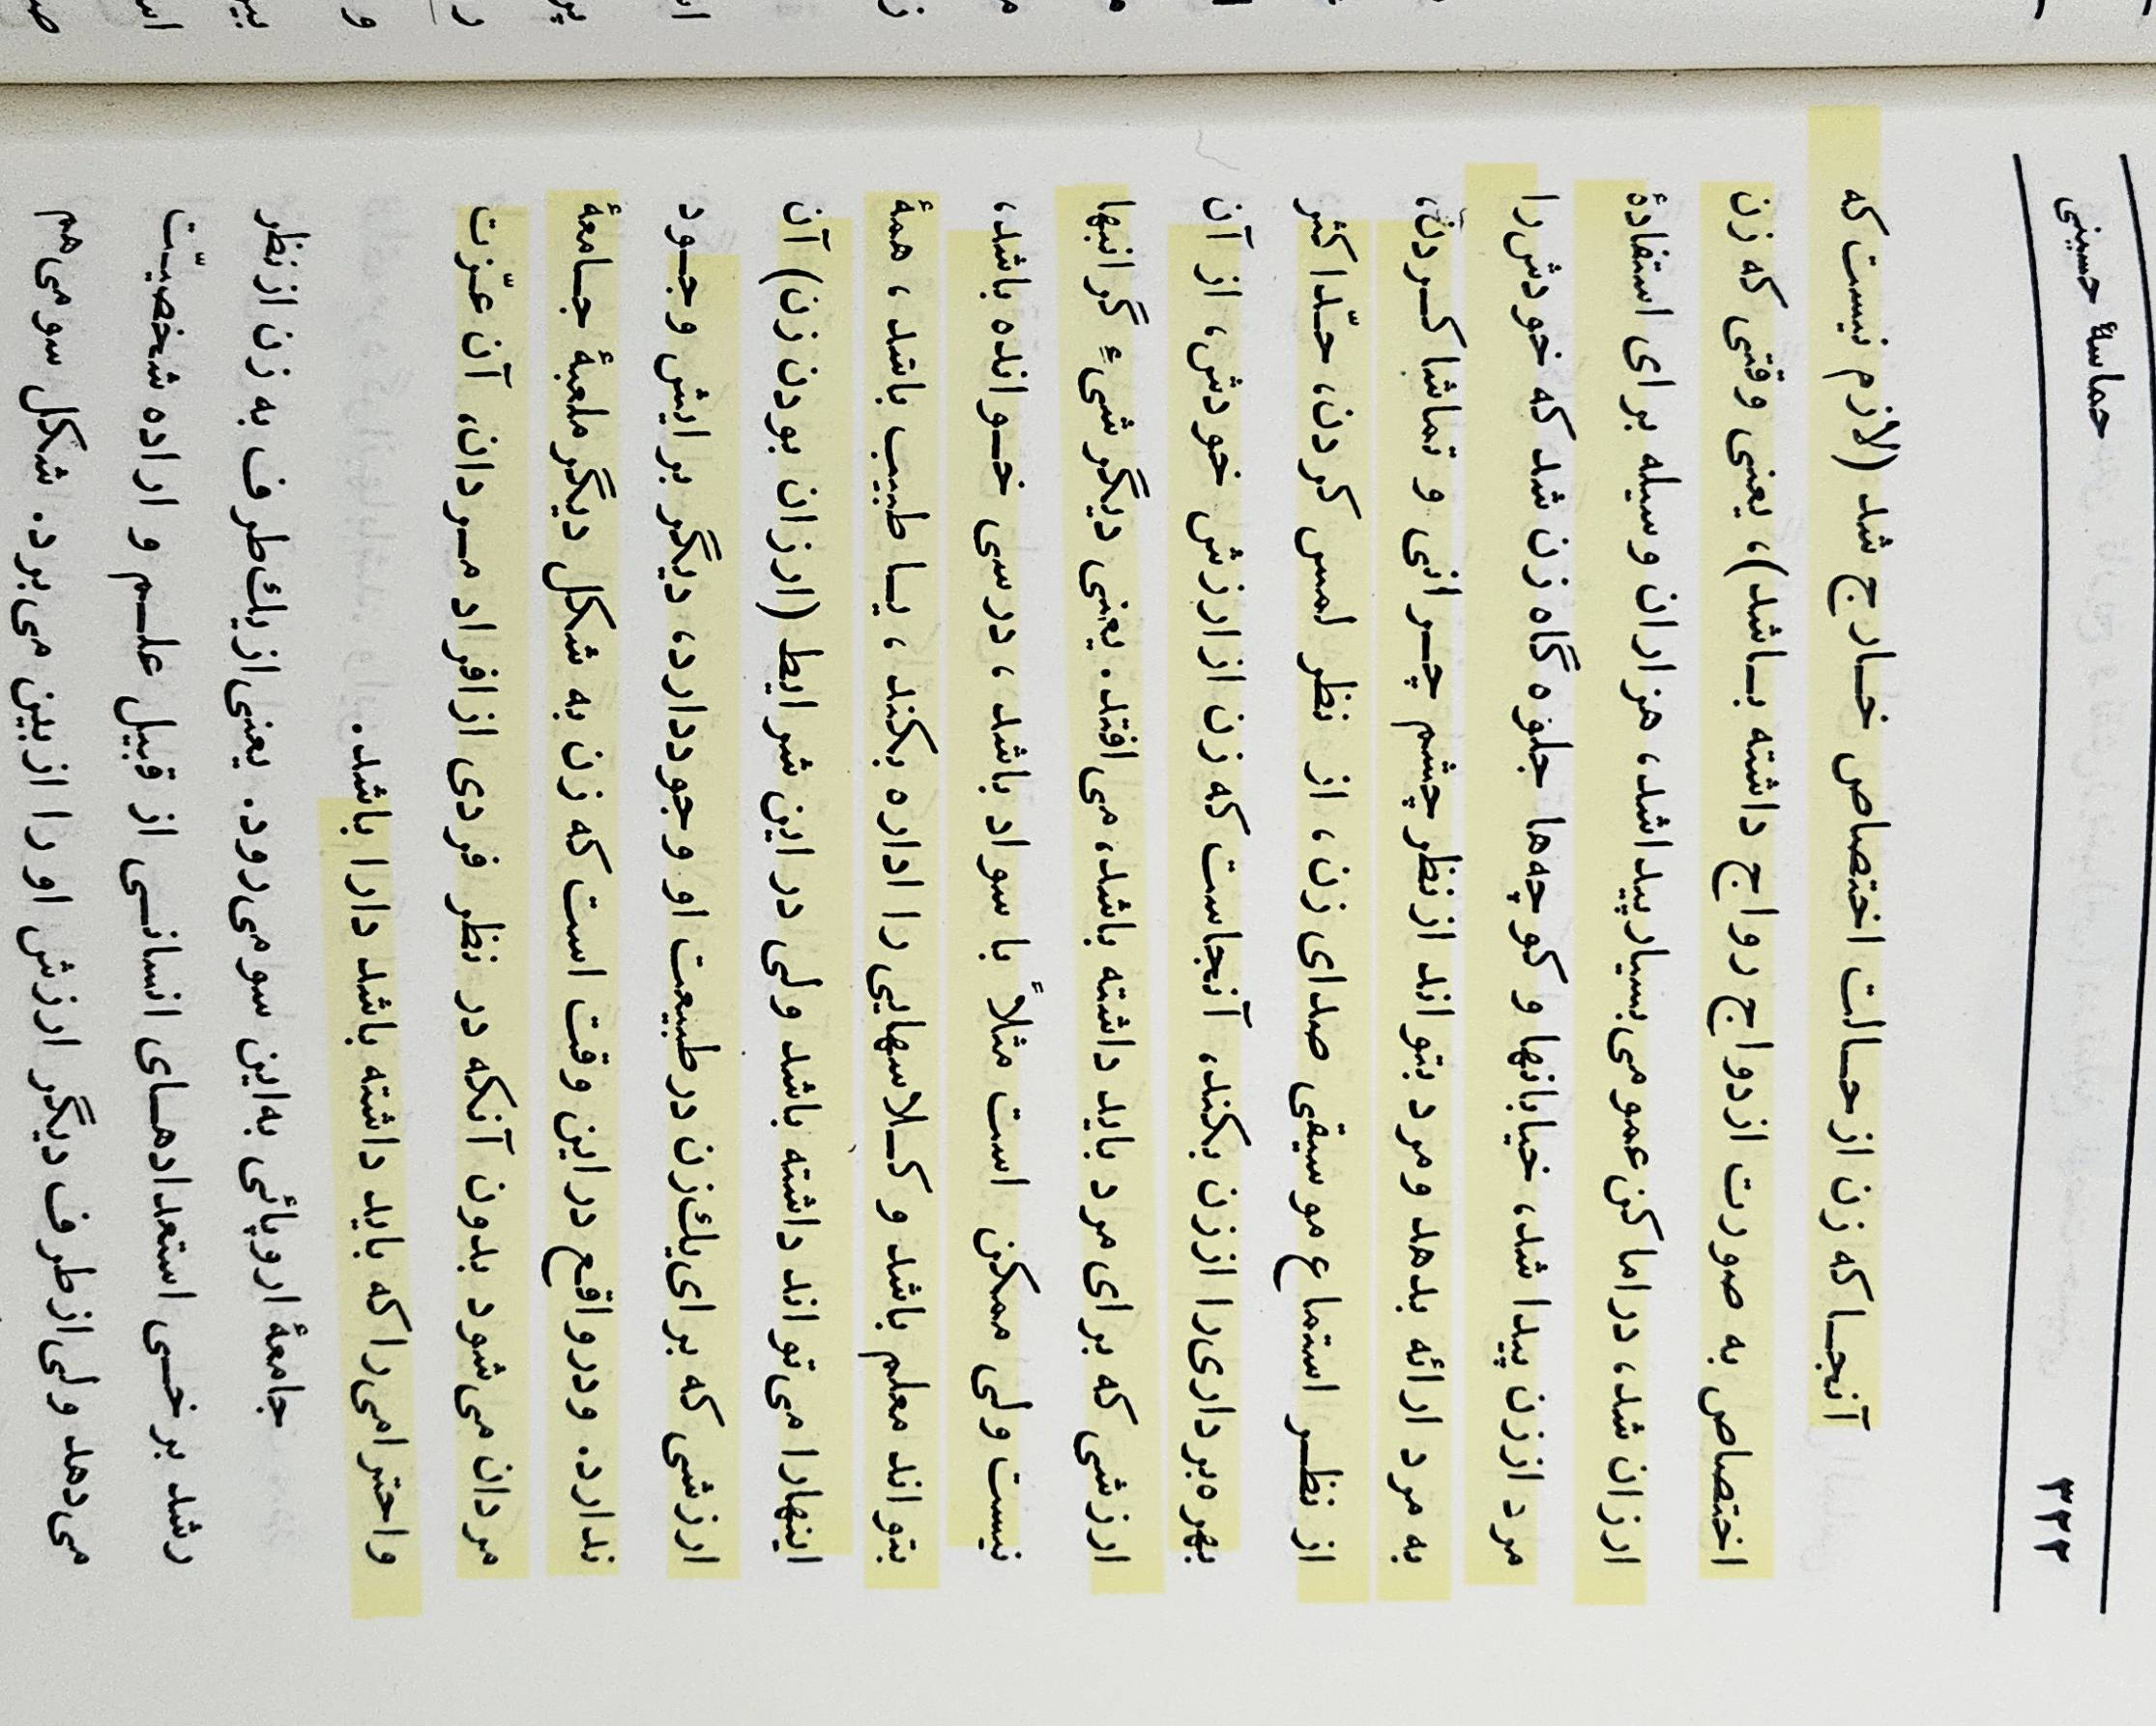 ۳۲۲ حماسهٔ حسینی
آنجا که زن از حالت اختصاص خارج شد (لازم نیست که
اختصاص به صورت ازدواج رواج داشته باشد)، یعنی وقتی که زن
ارزان شد، در اماکن عمومی بسیار پیدا شد، هزاران وسیله برای استفادهٔ
مرد از زن پیدا شد، خیابانها و کوچه‌ها جلوه گاه زن شد که خودش را
به مرد ارائه بدهد و مرد بتواند از نظر چشم چرانی و تماشا کردن،
از نظر استماع موسیقی صدای زن، از نظر لمس کردن، حدّاکثر
بهره‌برداری را از زن بکند، آنجاست که زن از ارزش خودش، از آن
ارزشی که برای مرد باید داشته باشد، می‌افتد. یعنی دیگر شیءِ گرانبها
نیست ولی ممکن است مثلاً با سواد باشد، درسی خوانده باشد،
بتواند معلم باشد و کلاسهایی را اداره بکند، یا طبیب باشد، همهٔ
اینها را می‌تواند داشته باشد ولی در این شرایط (ارزان بودن زن) آن
ارزشی که برای یك زن در طبیعت او وجود دارد، دیگر برایش وجود
ندارد. و در واقع در این وقت است که زن به شکل دیگر ملعبهٔ جامعهٔ
مردان می‌شود بدون آنکه در نظر فردی از افراد مردان، آن عزّت
و احترامی را که باید داشته باشد دارا باشد.
جامعهٔ اروپائی به‌این سو می‌رود. یعنی از یك طرف به زن از نظر
رشد برخی استعدادهای انسانی از قبیل علم و اراده شخصیّت
می‌دهد ولی از طرف دیگر ارزش او را از بین می‌برد. شکل سومی هم